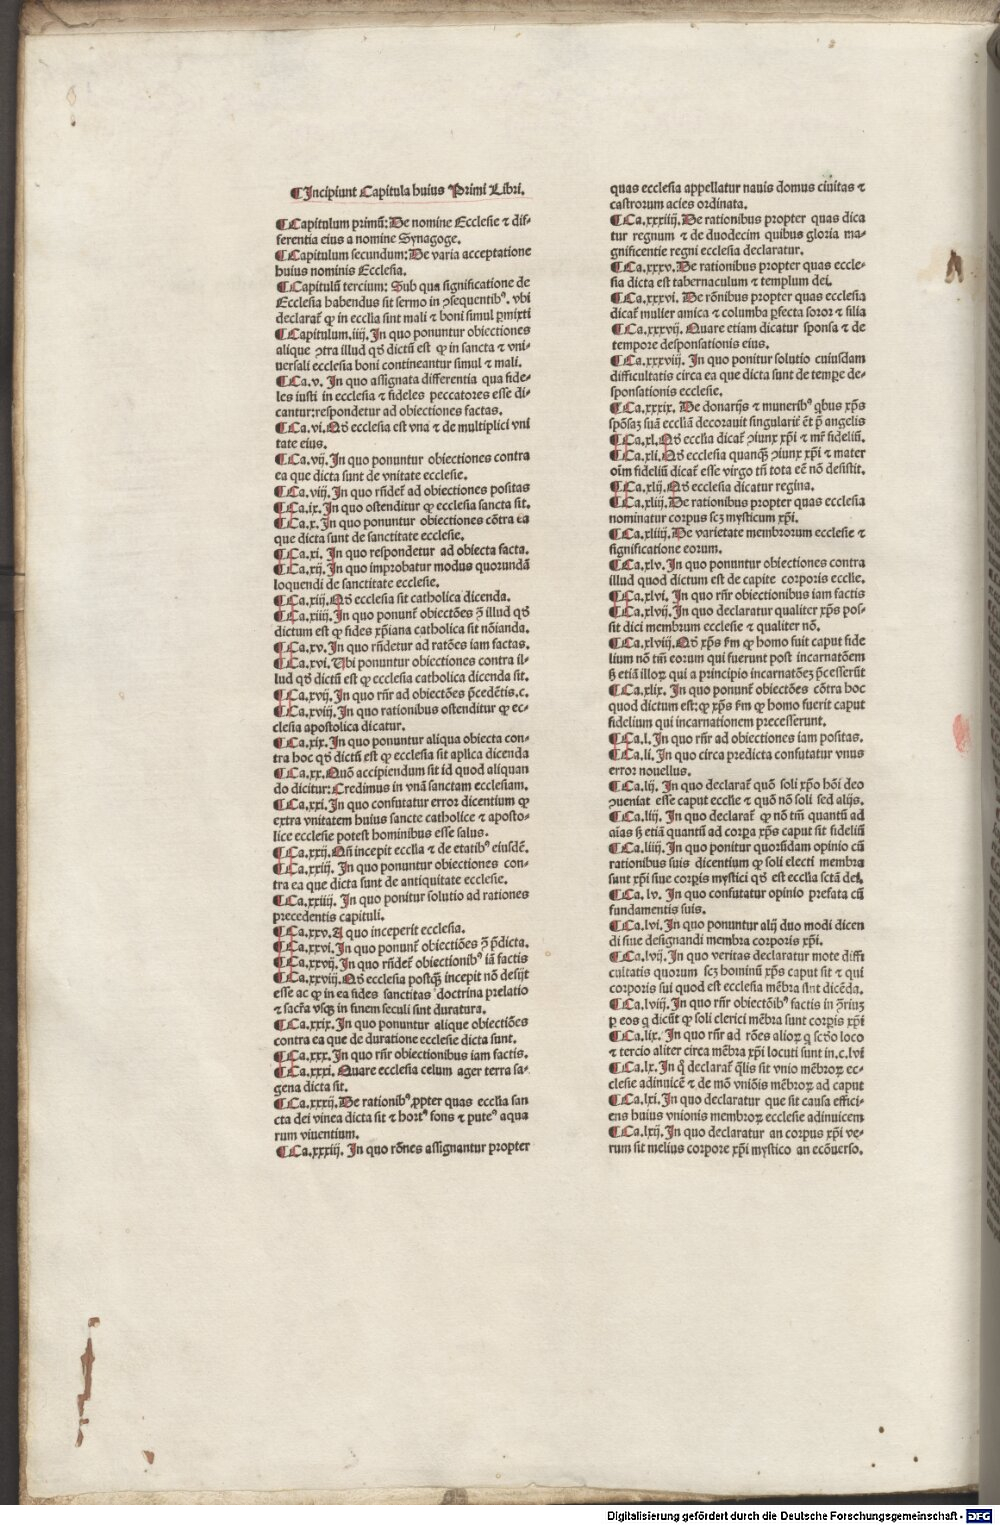 ¶Incipiunt Capitula huius Primi Libri.
¶Capitulum primũ: De nomine Ecclesie ⁊ dif-
ferentia eius a nomine Synagoge.
¶Capitulum secundum: De varia acceptatione
huius nominis Ecclesia.
¶Capitulũ tercium: Sub qua significatione de
Ecclesia habendus sit sermo in ꝯsequentibꝰ. vbi
declarat̃ ꝙ in ecclia sint mali ⁊ boni simul ꝑmixti
¶Capitulum.iiij. In quo ponuntur obiectiones
alique ꝯtra illud qđ dictũ est ꝙ in sancta ⁊ vni-
uersali ecclesia boni contineantur simul ⁊ mali.
¶Ca.v. In quo assignata differentia qua fide-
les iusti in ecclesia ⁊ fideles peccatores esse di-
cantur: respondetur ad obiectiones factas.
¶Ca.vi. Qđ ecclesia est vna ⁊ de multiplici vni
tate eius.
¶Ca.vij. In quo ponuntur obiectiones contra
ea que dicta sunt de vnitate ecclesie.
¶Ca.viij. In quo rñdet̃ ad obiectiones positas
¶Ca.ix. In quo ostenditur ꝙ ecclesia sancta sit.
¶Ca.x. In quo ponuntur obiectiones cõtra ea
que dicta sunt de sanctitate ecclesie.
¶Ca.xi. In quo respondetur ad obiecta facta.
¶Ca.xij. In quo improbatur modus quorundã
loquendi de sanctitate ecclesie.
¶Ca.xiij. Qđ ecclesia sit catholica dicenda.
¶Ca.xiiij. In quo ponunt̃ obiectões ꝯ̃ illud qđ
dictum est ꝙ fides xp̃iana catholica sit nõianda.
¶Ca.xv. In quo rñdetur ad ratões iam factas.
¶Ca.xvi. Vbi ponuntur obiectiones contra il-
lud qđ dictũ est ꝙ ecclesia catholica dicenda sit.
¶Ca.xvij. In quo rñr ad obiectões p̃cedẽtis.c.
¶Ca.xviij. In quo rationibus ostenditur ꝙ ec-
clesia apostolica dicatur.
¶Ca.xix. In quo ponuntur aliqua obiecta con-
tra hoc qđ dictũ est ꝙ ecclesia sit aplica dicenda
¶Ca.xx. Quõ accipiendum sit id quod aliquan
do dicitur: Credimus in vnã sanctam ecclesiam.
¶Ca.xxi. In quo confutatur error dicentium ꝙ
extra vnitatem huius sancte catholice ⁊ aposto-
lice ecclesie potest hominibus esse salus.
¶Ca.xxij. Qñ incepit ecclia ⁊ de etatibꝰ eiusdẽ.
¶Ca.xxiij. In quo ponuntur obiectiones con-
tra ea que dicta sunt de antiquitate ecclesie.
¶Ca.xxiiij. In quo ponitur solutio ad rationes
precedentis capituli.
¶Ca.xxv. A quo inceperit ecclesia.
¶Ca.xxvi. In quo ponunt̃ obiectiões ꝯ̃ p̃dicta.
¶Ca.xxvij. In quo rñdet̃ obiectionibꝰ iã factis
¶Ca.xxviij. Qđ ecclesia postqꝫ incepit nõ desijt
esse ac ꝙ in ea fides sanctitas doctrina prelatio
⁊ sacr̃a vsqꝫ in finem seculi sint duratura.
¶Ca.xxix. In quo ponuntur alique obiectiões
contra ea que de duratione ecclesie dicta sunt.
¶Ca.xxx. In quo rñr obiectionibus iam factis.
¶Ca.xxxi. Quare ecclesia celum ager terra sa-
gena dicta sit.
¶Ca.xxxij. De rationibꝰ ꝓpter quas ecclia san
cta dei vinea dicta sit ⁊ hortꝰ fons ⁊ puteꝰ aqua
rum viuentium.
¶Ca.xxxiij. In quo rõnes assignantur propter
quas ecclesia appellatur nauis domus ciuitas ⁊
castrorum acies ordinata.
¶Ca.xxxiiij. De rationibus propter quas dica
tur regnum ⁊ de duodecim quibus gloria ma-
gnificentie regni ecclesia declaratur.
¶Ca.xxxv. De rationibus propter quas eccle-
sia dicta est tabernaculum ⁊ templum dei.
¶Ca.xxxvi. De rõnibus propter quas ecclesia
dicat̃ mulier amica ⁊ columba ꝑfecta soror ⁊ filia
¶Ca.xxxvij. Quare etiam dicatur sponsa ⁊ de
tempore desponsationis eius.
¶Ca.xxxviij. In quo ponitur solutio cuiusdam
difficultatis circa ea que dicta sunt de tempꝛe de-
sponsationis ecclesie.
¶Ca.xxxix. De donarijs ⁊ muneribꝰ qbus xp̃s
spõsaꝫ suã eccliã decorauit singularit̃ ẽt p̃ angelis
¶Ca.xl. Qđ ecclia dicat̃ ꝯiunx xp̃i ⁊ mr̃ fideliũ.
¶Ca.xli. Qđ ecclesia quanqꝫ ꝯiunx xp̃i ⁊ mater
oĩm fideliũ dicat̃ esse virgo tñ tota eẽ nõ desistit.
¶Ca.xlij. Qđ ecclesia dicatur regina.
¶Ca.xliij. De rationibus propter quas ecclesia
nominatur corpus scꝫ mysticum xp̃i.
¶Ca.xliiij. De varietate membrorum ecclesie ⁊
significatione eorum.
¶Ca.xlv. In quo ponuntur obiectiones contra
illud quod dictum est de capite corporis ecclie.
¶Ca.xlvi. In quo rñr obiectionibus iam factis
¶Ca.xlvij. In quo declaratur qualiter xp̃s pos-
sit dici membrum ecclesie ⁊ qualiter nõ.
¶Ca.xlviij. Qđ xp̃s fm ꝙ homo fuit caput fide
lium nõ tm̃ eorum qui fuerunt post incarnatõem
ꝫ etiã illoꝝ qui a principio incarnatõeꝫ p̃cesserũt
¶Ca.xlix. In quo ponunt̃ obiectões cõtra hoc
quod dictum est: ꝙ xp̃s fm ꝙ homo fuerit caput
fidelium qui incarnationem precesserunt.
¶Ca.l. In quo rñr ad obiectiones iam positas.
¶Ca.li. In quo circa predicta confutatur vnus
error nouellus.
¶Ca.lij. In quo declarat̃ quõ soli xp̃o hõi deo
ꝯueniat esse caput ecclie ⁊ quõ nõ soli sed alijs.
¶Ca.liij. In quo declarat̃ ꝙ nõ tm̃ quantũ ad
aĩas ꝫ etiã quantũ ad corꝑa xp̃s caput sit fideliũ
¶Ca.liiij. In quo ponitur quorũdam opinio cũ
rationibus suis dicentium ꝙ soli electi membra
sunt xp̃i siue corꝑis mystici qđ est ecclia sctã dei.
¶Ca.lv. In quo confutatur opinio prefata cũ
fundamentis suis.
¶Ca.lvi. In quo ponuntur alij duo modi dicen
di siue designandi membra corporis xp̃i.
¶Ca.lvij. In quo veritas declaratur mote diffi
cultatis quorum scꝫ hominũ xp̃s caput sit ⁊ qui
corporis sui quod est ecclesia mẽbra sint dicẽda.
¶Ca.lviij. In quo rñr obiectõibꝰ factis in ꝯ̃riuꝫ
ꝑ eos q dicũt ꝙ soli clerici mẽbra sunt corꝑis xp̃i
¶Ca.lix. In quo rñr ad rões alioꝝ q scđo loco
⁊ tercio aliter circa mẽbra xp̃i locuti sunt in.c.lvi
¶Ca.lx. In q̊ declarat̃ q̃lis sit vnio mẽbroꝝ ec-
clesie adinuicẽ ⁊ de mõ vniõis mẽbroꝝ ad caput
¶Ca.lxi. In quo declaratur que sit causa effici-
ens huius vnionis membroꝝ ecclesie adinuicem
¶Ca.lxij. In quo declaratur an corpus xp̃i ve-
rum sit melius corpore xp̃i mystico an ecõuerso.
Digitalisierung gefördert durch die Deutsche Forschungsgemeinschaft - DFG